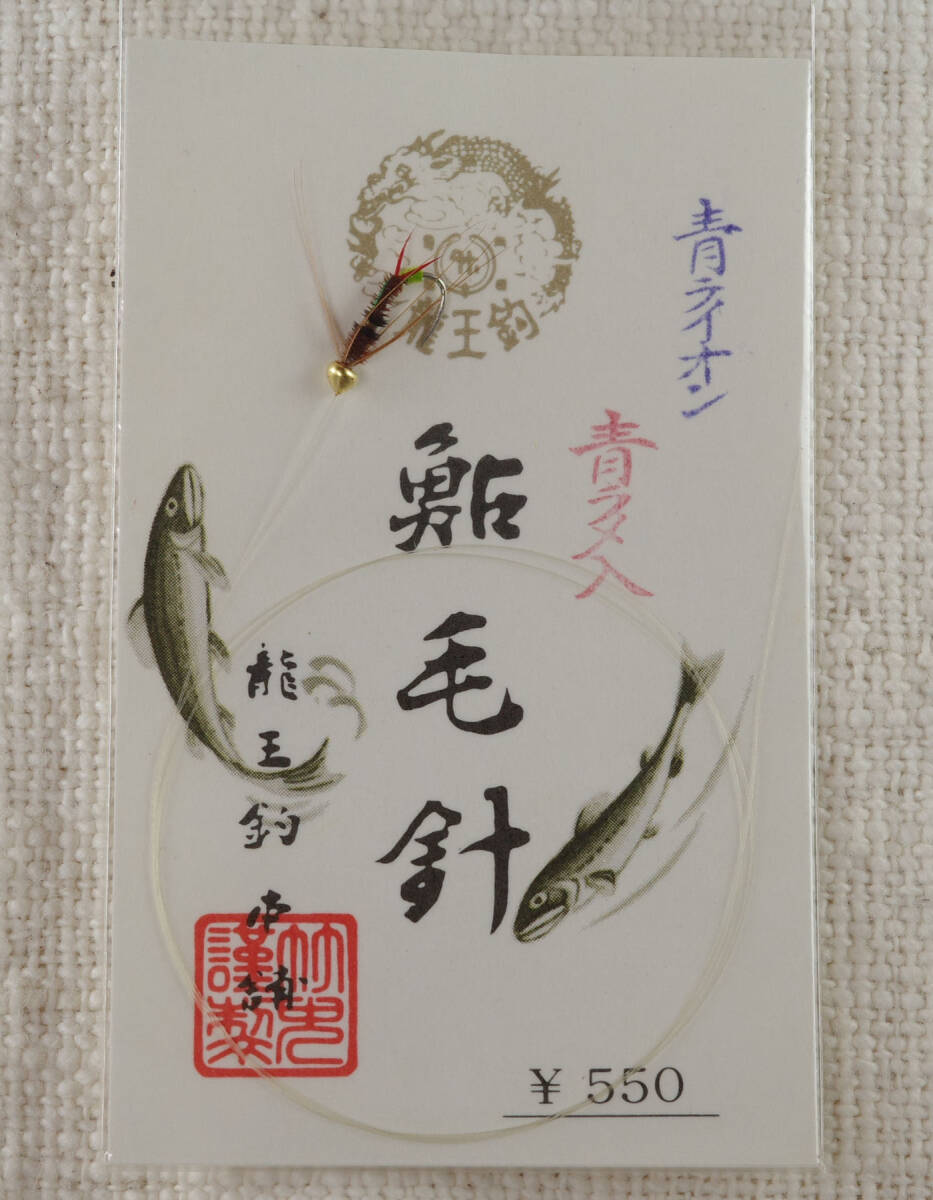 青ライオン
青ラメ入
鮎毛針
龍王釣本舗
龍王釣
謹製
¥ 550